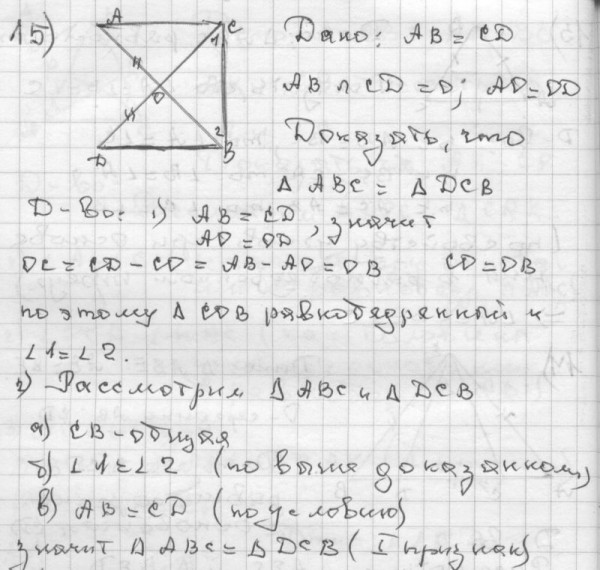 15)
A
C
1
O
2
D
B
Дано: AB = CD
AB ∩ CD = O; AO = OD
Доказать, что
Δ ABC = Δ DCB
Д-во: 1) AB = CD
AO = OD , значит
OC = CD - CD = AB - AO = OB CO = OB
поэтому Δ COB равнобедренный и
∠1 = ∠2.
2) Рассмотрим Δ ABC и Δ DCB
а) CB - общая
б) ∠1 = ∠2 (по выше доказанному)
в) AB = CD (по условию)
значит Δ ABC = Δ DCB (I признак)